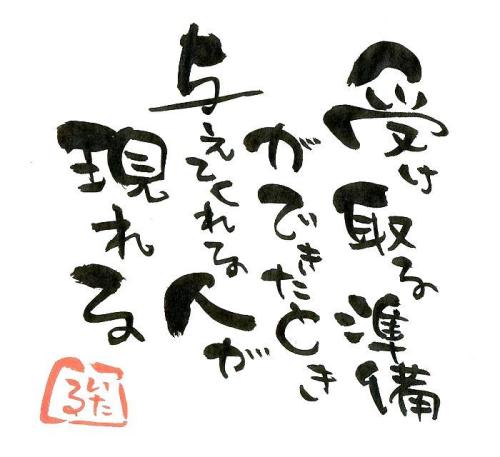 受け取る準備
ができたとき
与えてくれる人が
現れる
いた
る